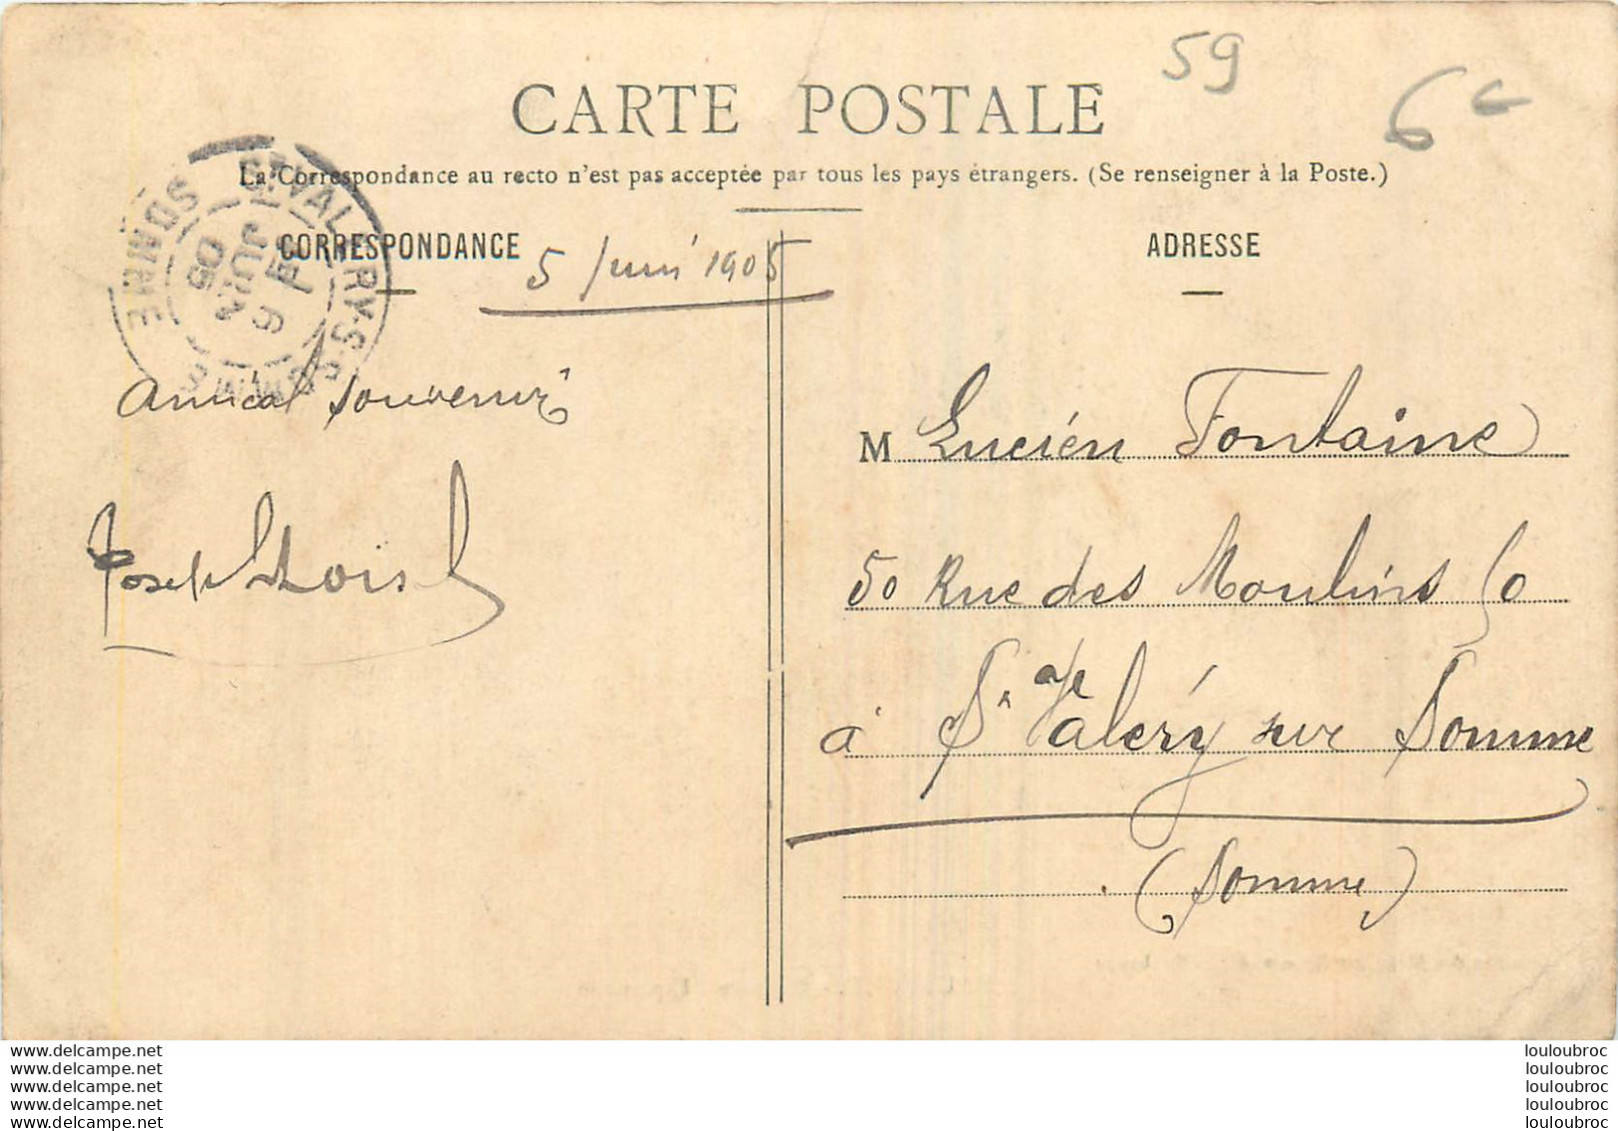 59
6€
CARTE POSTALE
La Correspondance au recto n'est pas acceptée par tous les pays étrangers. (Se renseigner à la Poste.)
CORRESPONDANCE
ADRESSE
ST VALERY-S-SOMME
SOMME
6
JUIN
05
5 Juin 1905
Amical souvenir
Joseph
M Lucien Fontaine
50 Rue des Moulins 50
à St Valéry sur Somme
(Somme)
www.delcampe.net
www.delcampe.net
www.delcampe.net
www.delcampe.net
www.delcampe.net
louloubroc
louloubroc
louloubroc
louloubroc
louloubroc